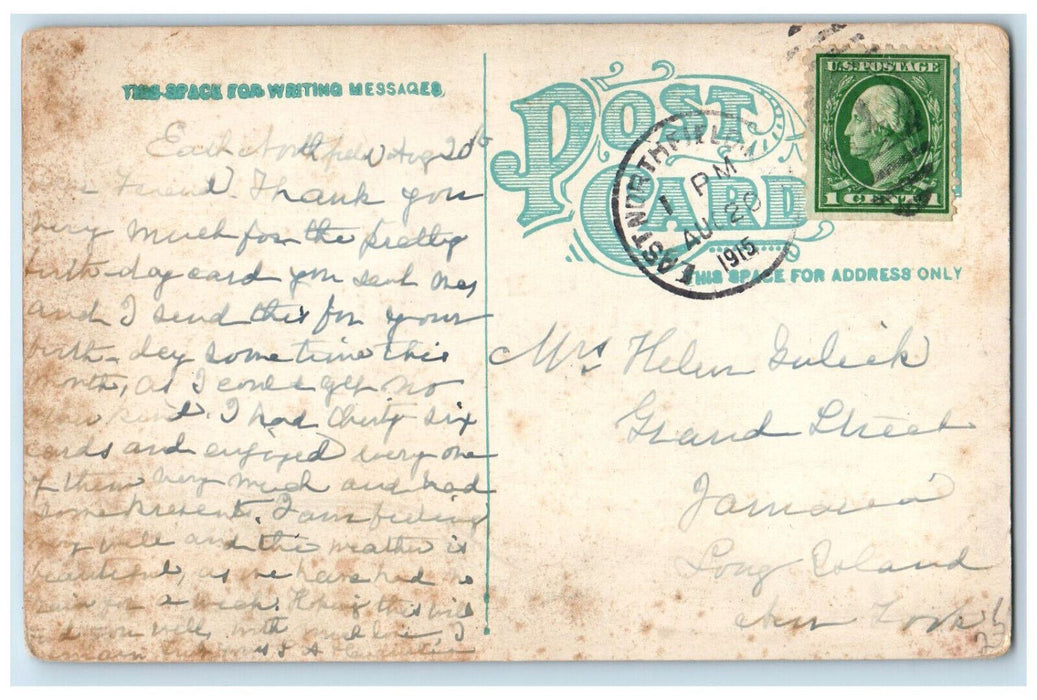 THIS SPACE FOR WRITING MESSAGES
East Northfield Aug 20th
Friend. Thank you
very much for the pretty
birth-day card you sent me,
and I send this for your
birth-day sometime this
month, as I could get no
I had thirty six
cards and enjoyed every one
of them very much and had
some presents. I am feeling
very well and the weather is
beautiful, as we have had no
rain for a week. Hoping this will
find you well, with much love, I
remain
POST
CARD
EAST NORTHFIELD
1 PM
AUG 20
1915
U.S. POSTAGE
1 CENT 1
THIS SPACE FOR ADDRESS ONLY
Mrs Helen Gulick
Grand Street
Jamaica
Long Island
New York